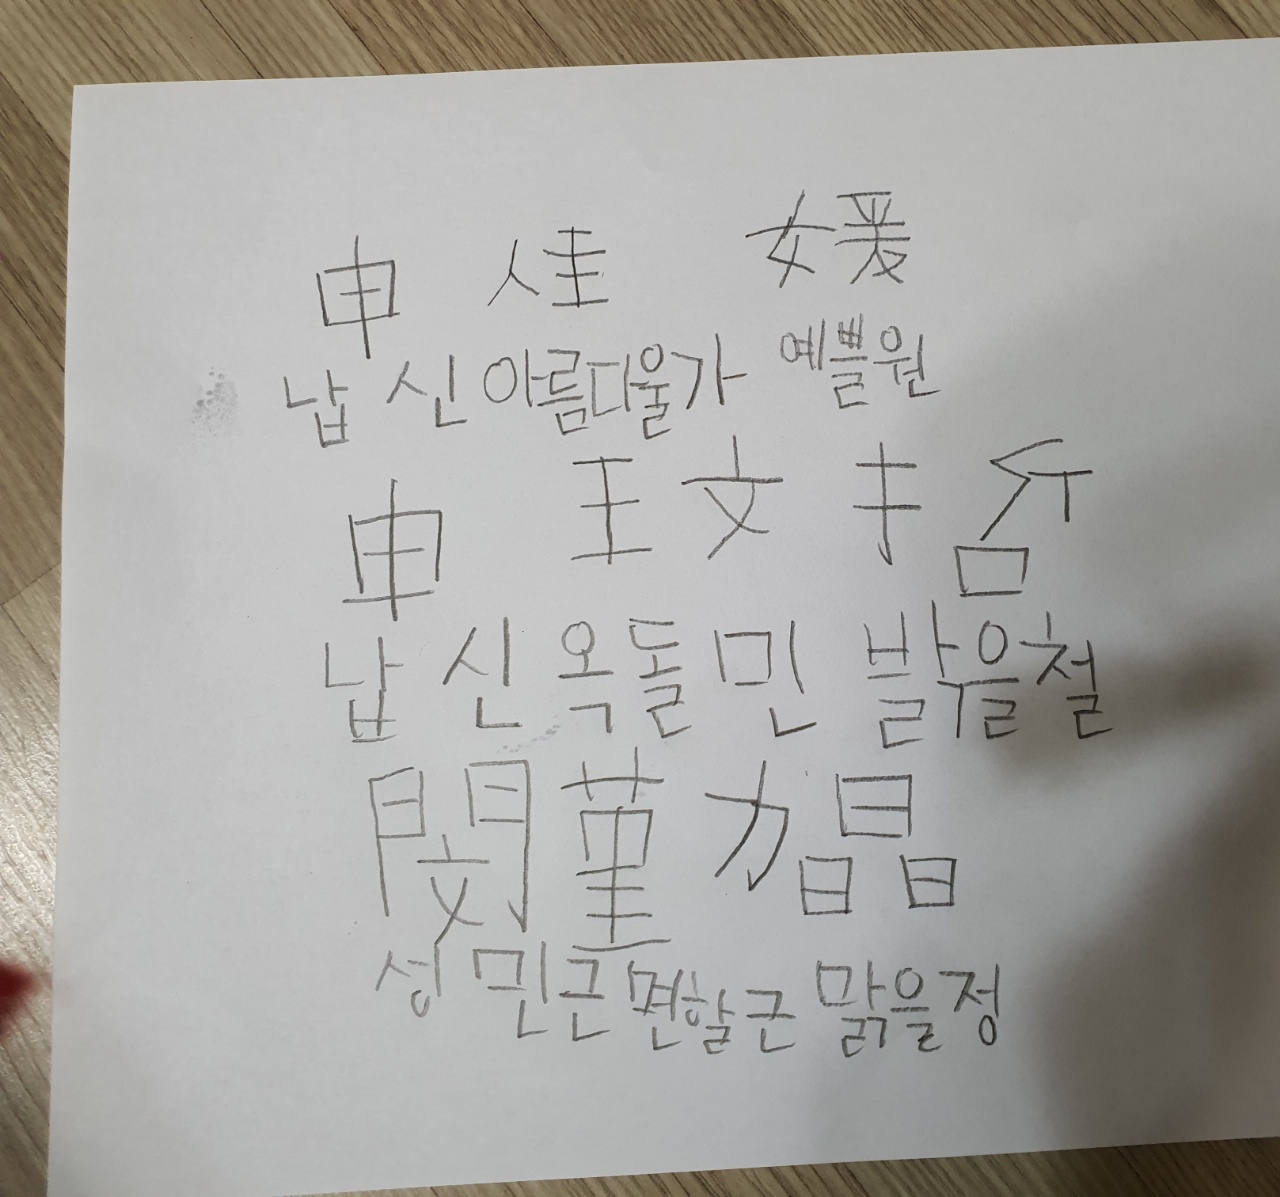 申 佳 媛
납 신 아름다울가 예쁠원
申 玟 哲
납 신 옥돌 민 밝을철
閔 菫力 晶
성 민근 면할근 맑을정